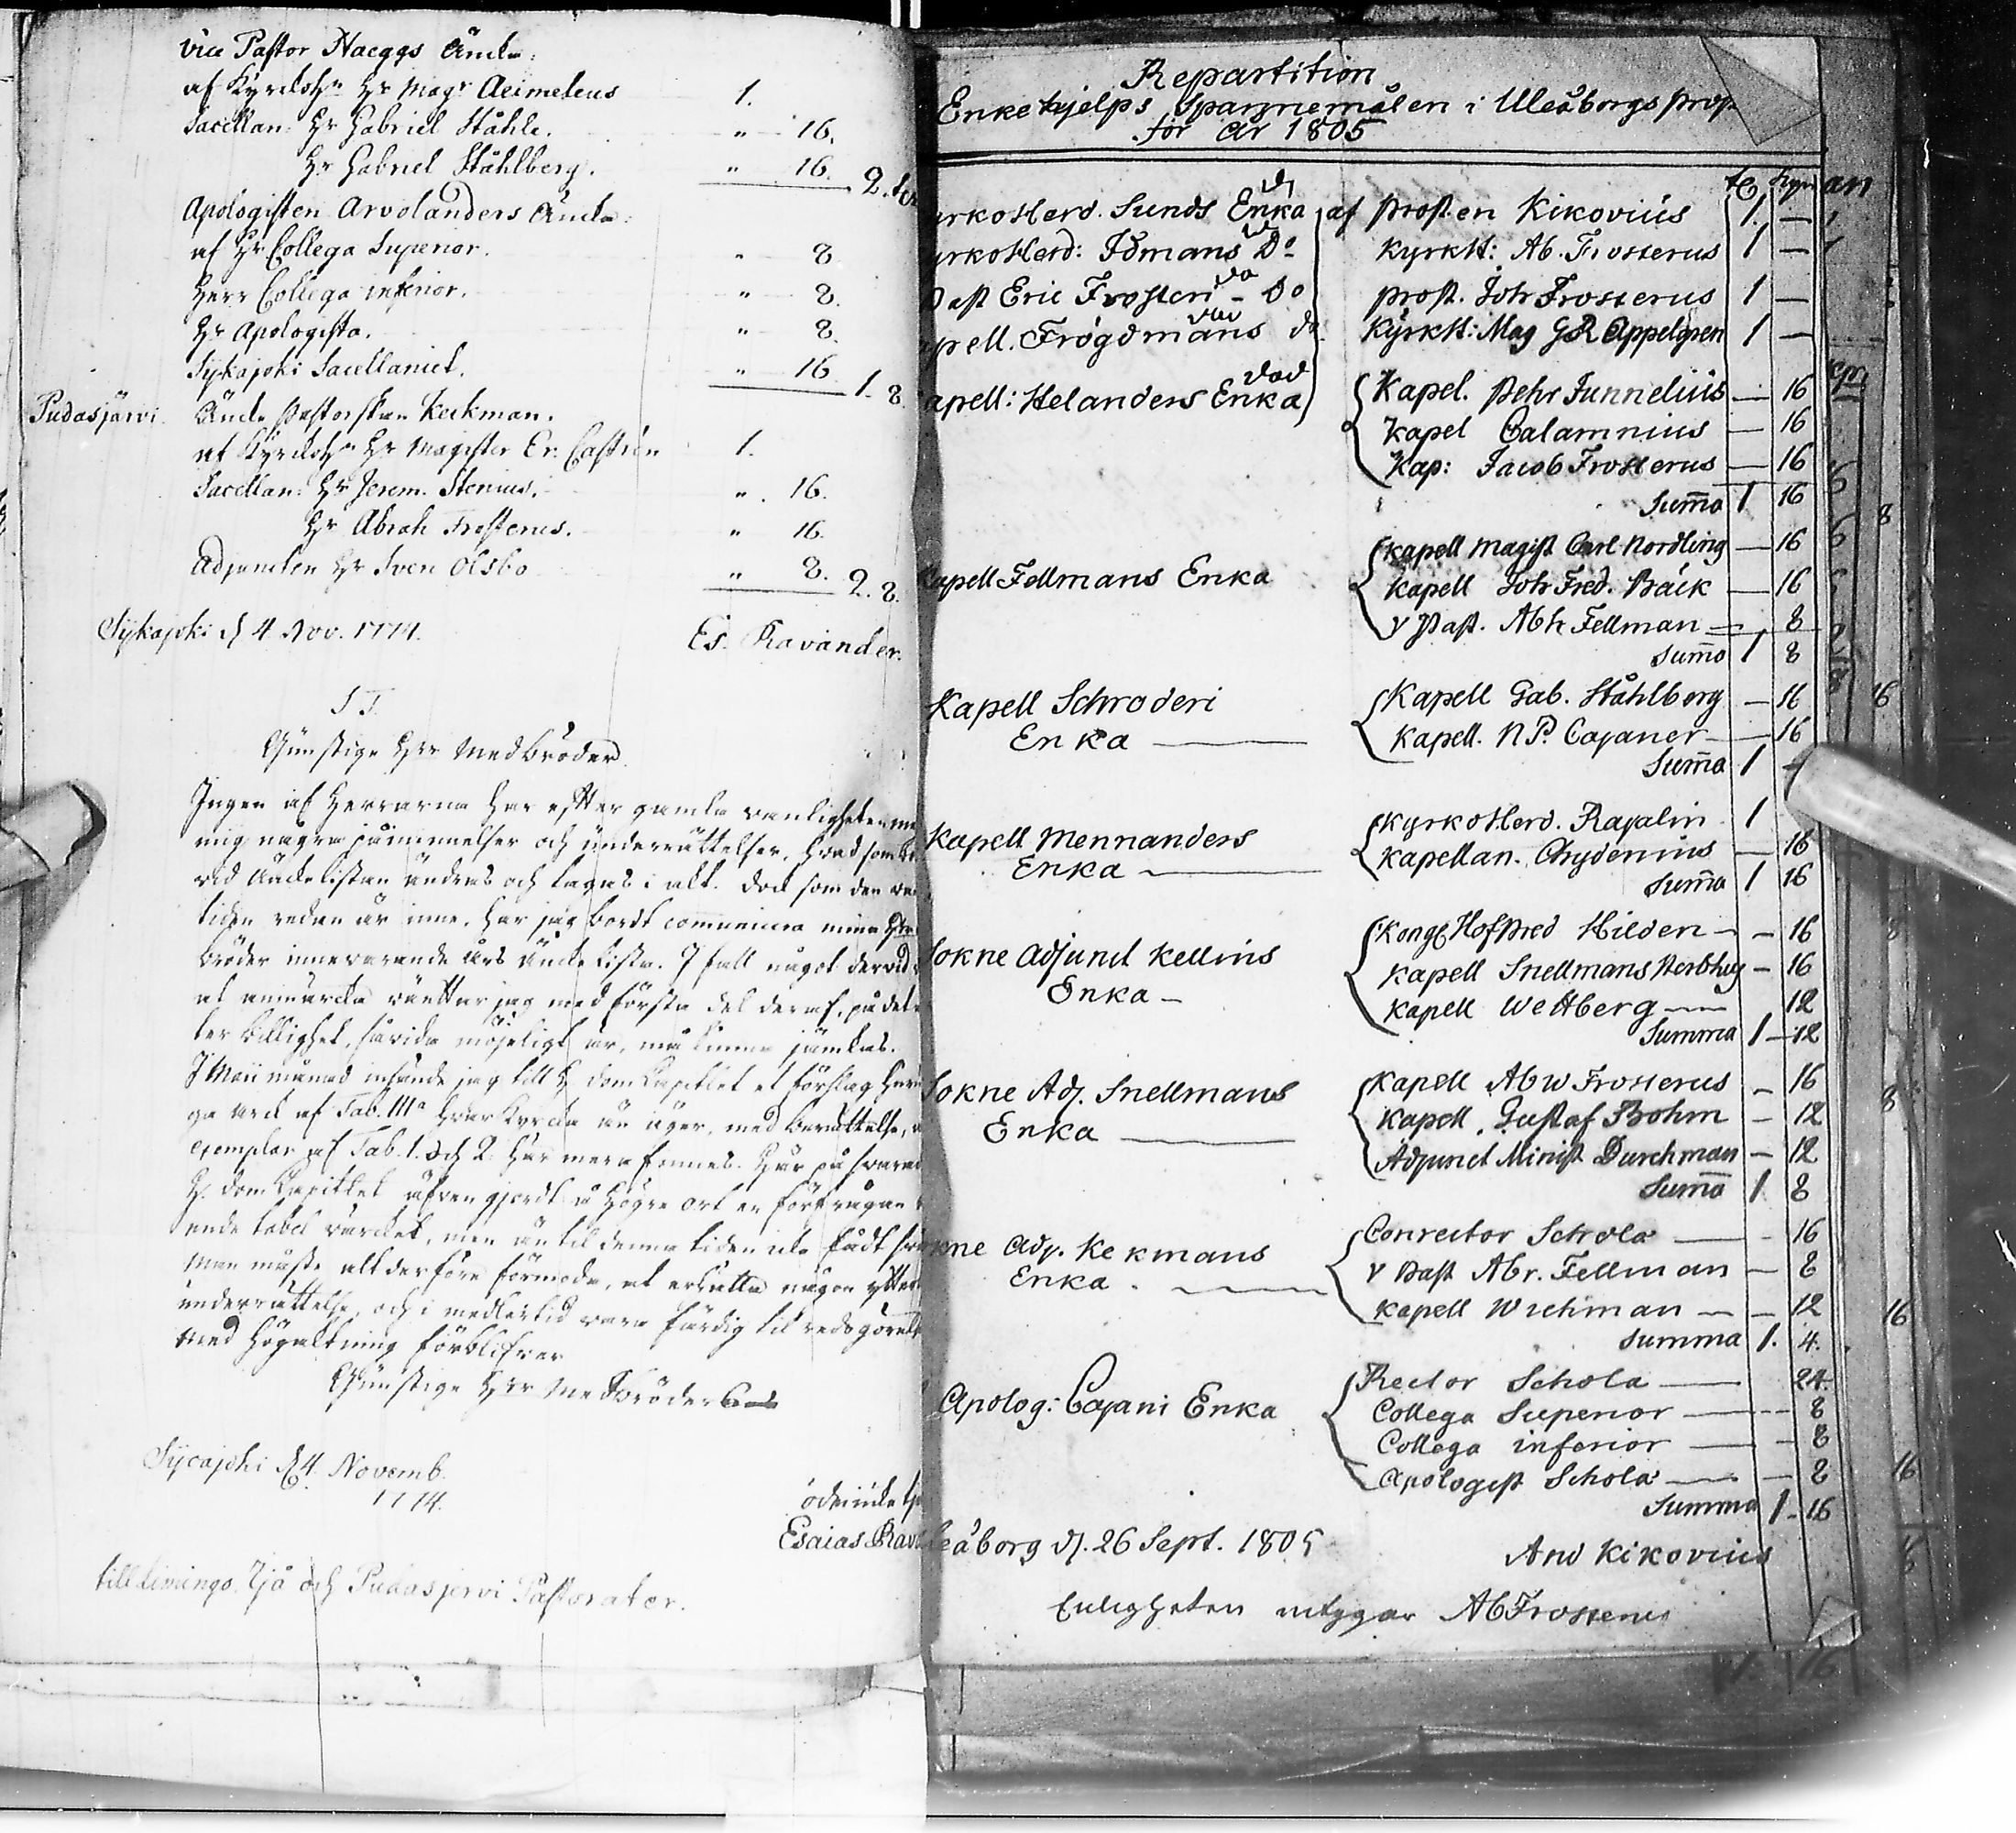 Vice Pastor Haeggs Äncka:
af Kyrckoh:n Hr Mag:r Aeimeleus 1.
Sacellan: Hr Gabriel Ståhle. " 16.
Hr Gabriel Ståhlberg. " 16. 2.
Apologisten Arvolanders Äncka:
af Hr Collega Superior. " 8
Herr Collega inferior. " 8.
Hr Apologista. " 8.
Sijkajoki Sacellaniet. " 16. 1. 8.
Pudasjärvi. Äncke Pastorskan Keckman.
af Kyrckoh:n Hr Magister Er: Castrén 1.
Sacellan: Hr Jerem. Stenius. " 16.
Hr Abrah Frosterus. " 16.
Adjuncten Hr Sven Olsbo " 8. 2. 8.
Sijkajoki d 4 Nov. 1774. Es. Ravander.
S T.
Gunstige Herr Medbröder.
Ingen af Herrarna har efter gamla vanligheten
mig några påminnelser och underrättelser, hvad som
vid Ancke listan ändras och lagas i akt. Dock som den
tiden redan är inne, har jag bordt communicera mina
bröder innevarande års Äncke Lista. I fall något dervid
at anmärcka väntar jag med första del deraf, på det
ter billighet, såvida möjeligt är, må kunna jämkas.
I Maii månad insände jag till H. Dom Capitlet et förslag
ga ark af Tab. III:a hvar kyrcka än äger, med berättelse,
exemplar af Tab. 1. och 2. här mera finnes. Här på svarade
H. Dom Capitlet äfven gjordt å högre ort en förfrågan
ende tabel värcket, men än til denna tiden icke fådt
Man måste alt derföre förmoda, at erhålla någon
underrättelse, och i medlertid vara färdig til
Med högaktning förblifver
Gunstige Herr Medbröders
Sijcajoki d 4. Novemb.
1774.
ödmiuka
Esaias
till Limingo, Ijå och Pudasjervi Pastorater.
Repartition
Enkehjelps Spannemålen i Uleåborgs prop
för år 1805
yrkoHerd. Sunds Enka af Prosten Kikovius 1. —
yrkoHerd: Idmans Do KyrkH: Ab. Frosterus 1 —
Past Eric Frosteri — Do Prost. Joh Frosterus 1 —
apell. Frogdmans do KyrkH: Mag GR Appelgren 1 —
apell: Helanders Enka Kapel. Pehr Junnelius — 16
Kapel Calamnius — 16
Kap: Jacob Frosterus — 16
Suma 1 16
Kapell Fellmans Enka Kapell Magist Carl Nordling — 16
Kapell Joh Fred. Bäck — 16
V Past. Abh Fellman — 8
Suma 1 8
Kapell Schroderi Kapell Gab. Ståhlberg — 16
Enka — Kapell. N P. Cajaner — 16
Suma 1 —
Kapell Mennanders KyrkoHerd. Rajalin 1
Enka — Kapellan. Chydenius — 16
Suma 1 16
Sokne Adjunct Kellins Kongl HofPred Hilden — 16
Enka — Kapell Snellmans Sterbhus — 16
Kapell Westberg — 12
Summa 1 — 12
Sokne Adj. Snellmans Kapell Ab W Frosterus — 16
Enka — Kapell. Gustaf Bohm — 12
Adjunct Minist Durchman — 12
Suma 1. 8
kne Adj. Kekmans Conrector Schola — 16
Enka. — V Past Abr. Fellman — 8
Kapell Wichman — 12
Summa 1. 4.
Apolog: Cajani Enka Rector Schola — 24.
Collega Superior — 8
Collega inferior — 8
Apologist Schola — 8
Summa 1 — 16
leåborg d. 26 Sept. 1805 And Kikovius
Enligheten intygar Ab Frosterus